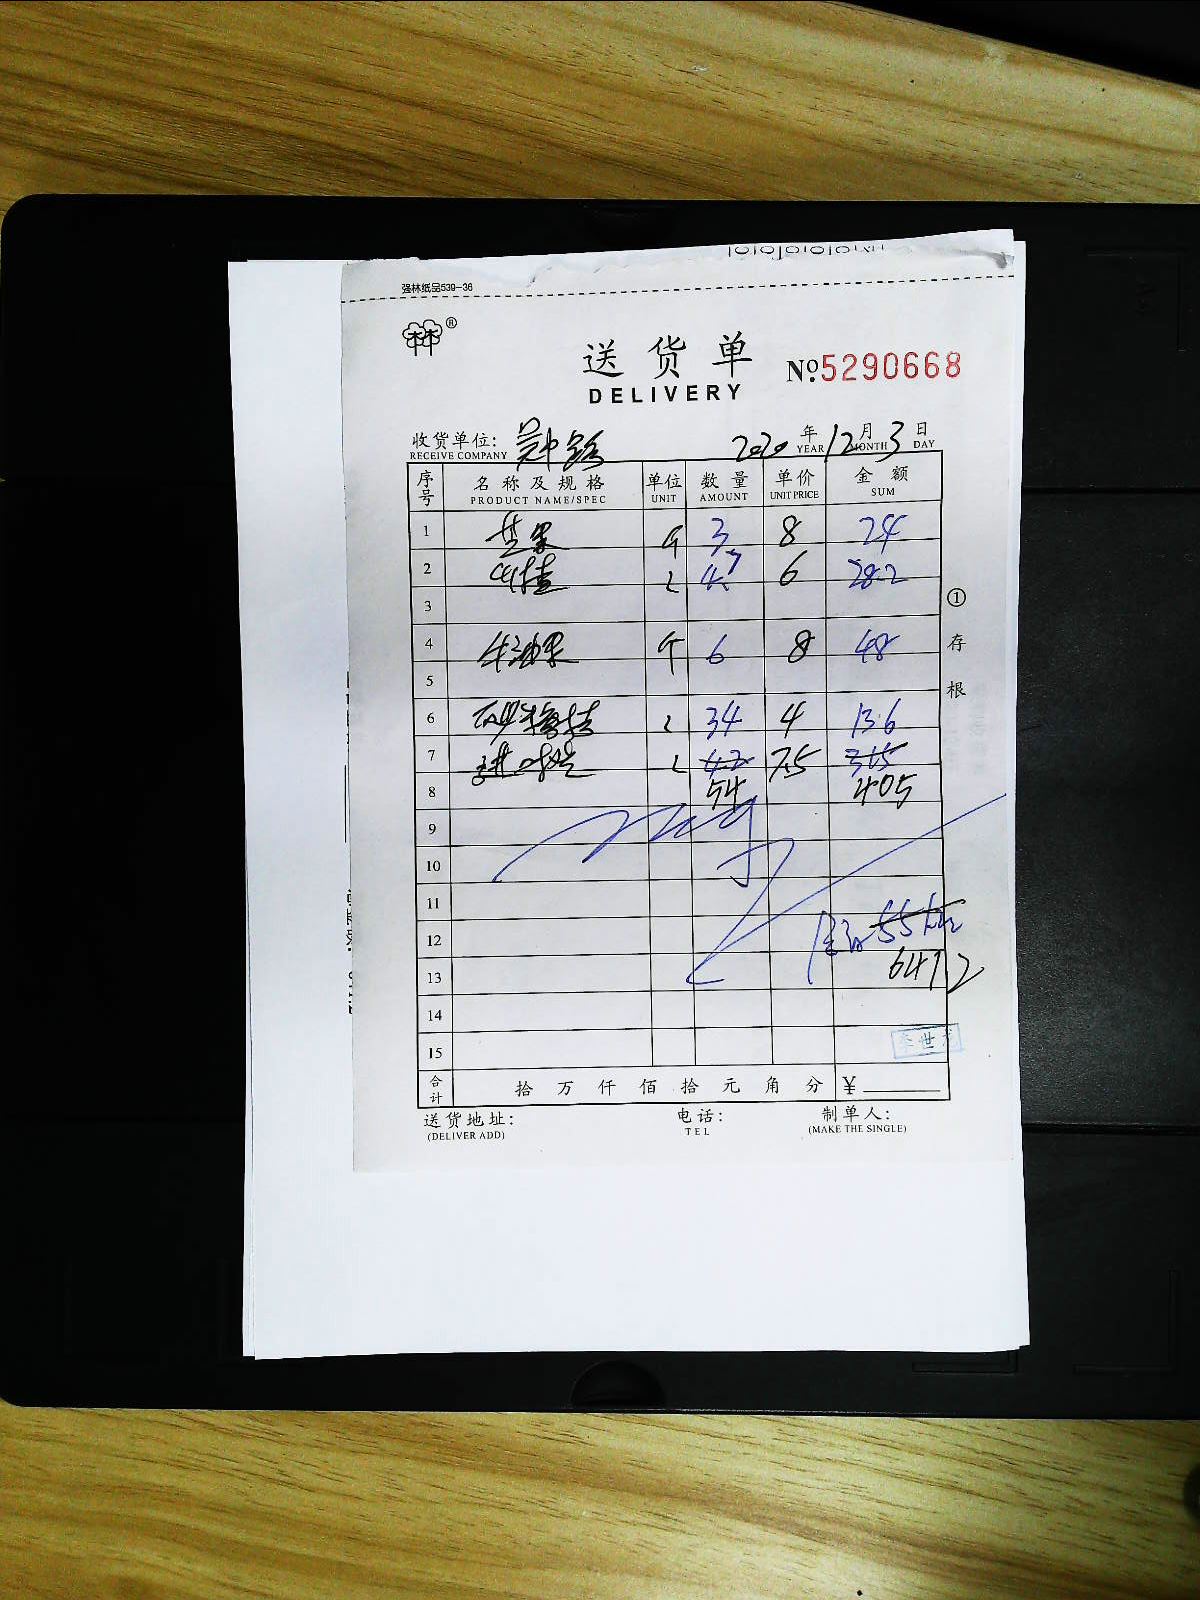 强林纸品539-36
林®
送货单
№:5290668
DELIVERY
收货单位: 吴中路 2020年12月3日
RECEIVE COMPANY YEAR MONTH DAY
序号 名称及规格 单位 数量 单价 金额
PRODUCT NAME/SPEC UNIT AMOUNT UNIT PRICE SUM
1 芒果 个 3 8 24
2 4.7 6 28.2
3
4 牛油果 个 6 8 48
5
6 34 4 13.6
7 42 75 315
8 54 405
9
10
11
12
13 641.2
14
15 李世龙
合计 拾 万 仟 佰 拾 元 角 分 ¥
① 存根
送货地址: 电话: 制单人:
(DELIVER ADD) TEL (MAKE THE SINGLE)